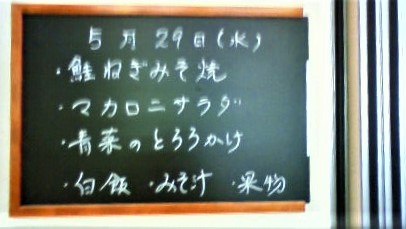 5月29日(水)
・鮭ねぎみそ焼
・マカロニサラダ
・青菜のとろろかけ
・白飯 ・みそ汁 ・果物